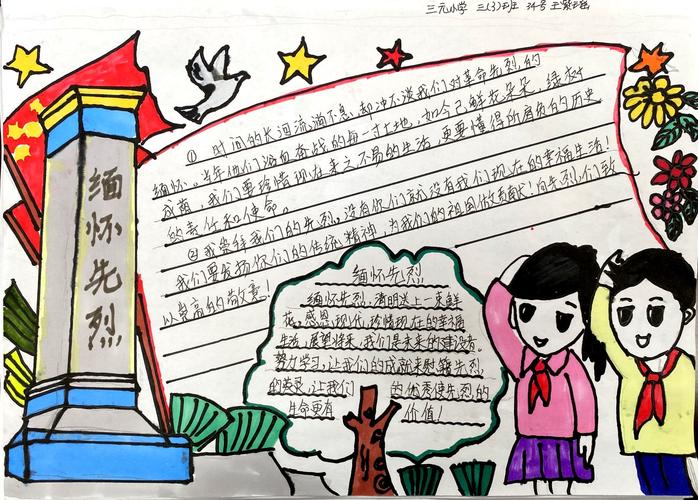 三元小学 三(3)班 34号
缅怀先烈
① 时间的长河流淌不息,却冲不淡我们对革命先烈的
缅怀。当年他们浴血奋战的每一寸土地,如今已鲜花朵朵,绿树
成茵。我们要珍惜现在来之不易的生活,更要懂得所肩负的历史
的责任和使命。
②我崇拜我们的先烈,没有你们就没有我们现在的幸福生活!
我们要发扬你们的传统精神,为我们的祖国做贡献!向先烈们致
以崇高的敬意!
缅怀先烈
缅怀先烈,清明送上一束鲜
花。感恩现代,珍惜现在的幸福
生活。展望将来,我们是未来的建设者
努力学习,让我们的成就来慰籍先烈
的英灵,让我们 的优秀使先烈的
生命更有 价值!